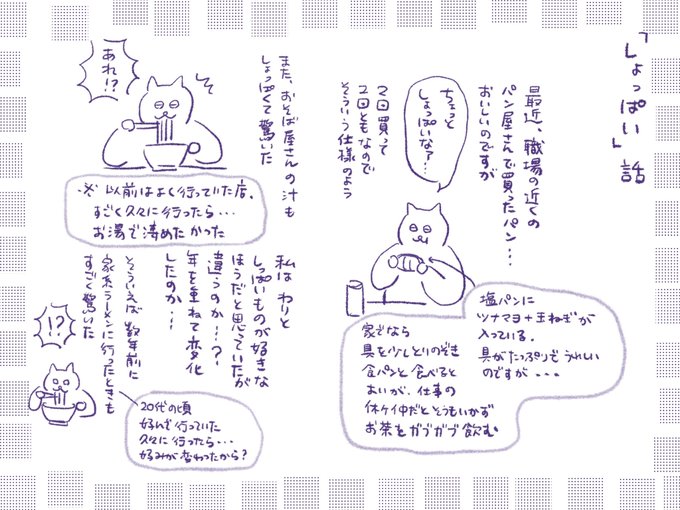 「しょっぱい」話
最近、職場の近くの
パン屋さんで買ったパン…
おいしいのですが
ちょっと
しょっぱいなァ…
2回買って
2回ともなので
そういう仕様のよう
塩パンに
ツナマヨ+玉ねぎが
入っている。
具がたっぷりでうれしい
のですが・・・
家でなら
具を少しとりのぞき
食パンと食べると
よいが、仕事の
休ケイ中だとそうもいかず
お茶をガブガブ飲む
また、おそば屋さんの汁も
しょっぱくて驚いた
あれ!?
※以前はよく行っていた店、
すごく久々に行ったら・・・
お湯で薄めたかった
私はわりと
しょっぱいものが好きな
ほうだと思っていたが
違うのか…?
年を重ねて変化
したのか…
そういえば数年前に
家系ラーメンに行ったときも
すごく驚いた
!?
20代の頃
好んで行っていた
久々に行ったら・・・
好みが変わったから?